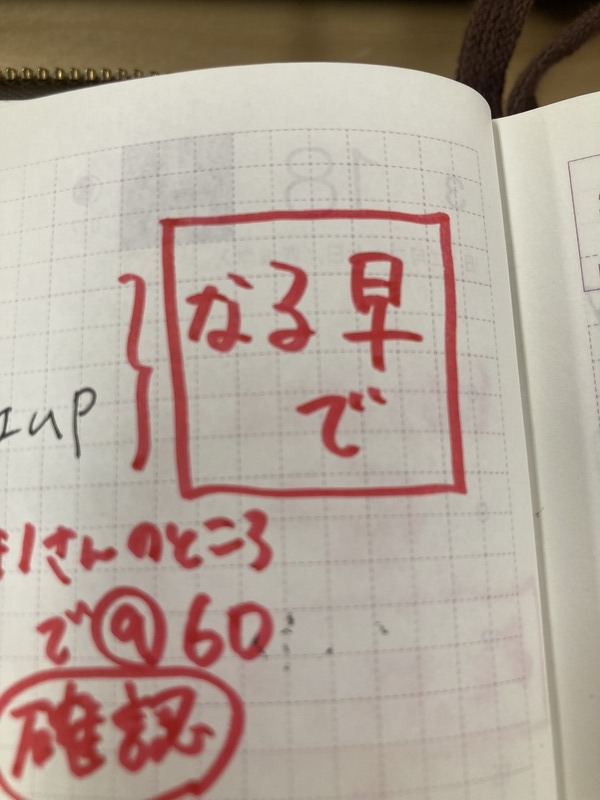 なる早
で
up
さんのところ
で@60
確認